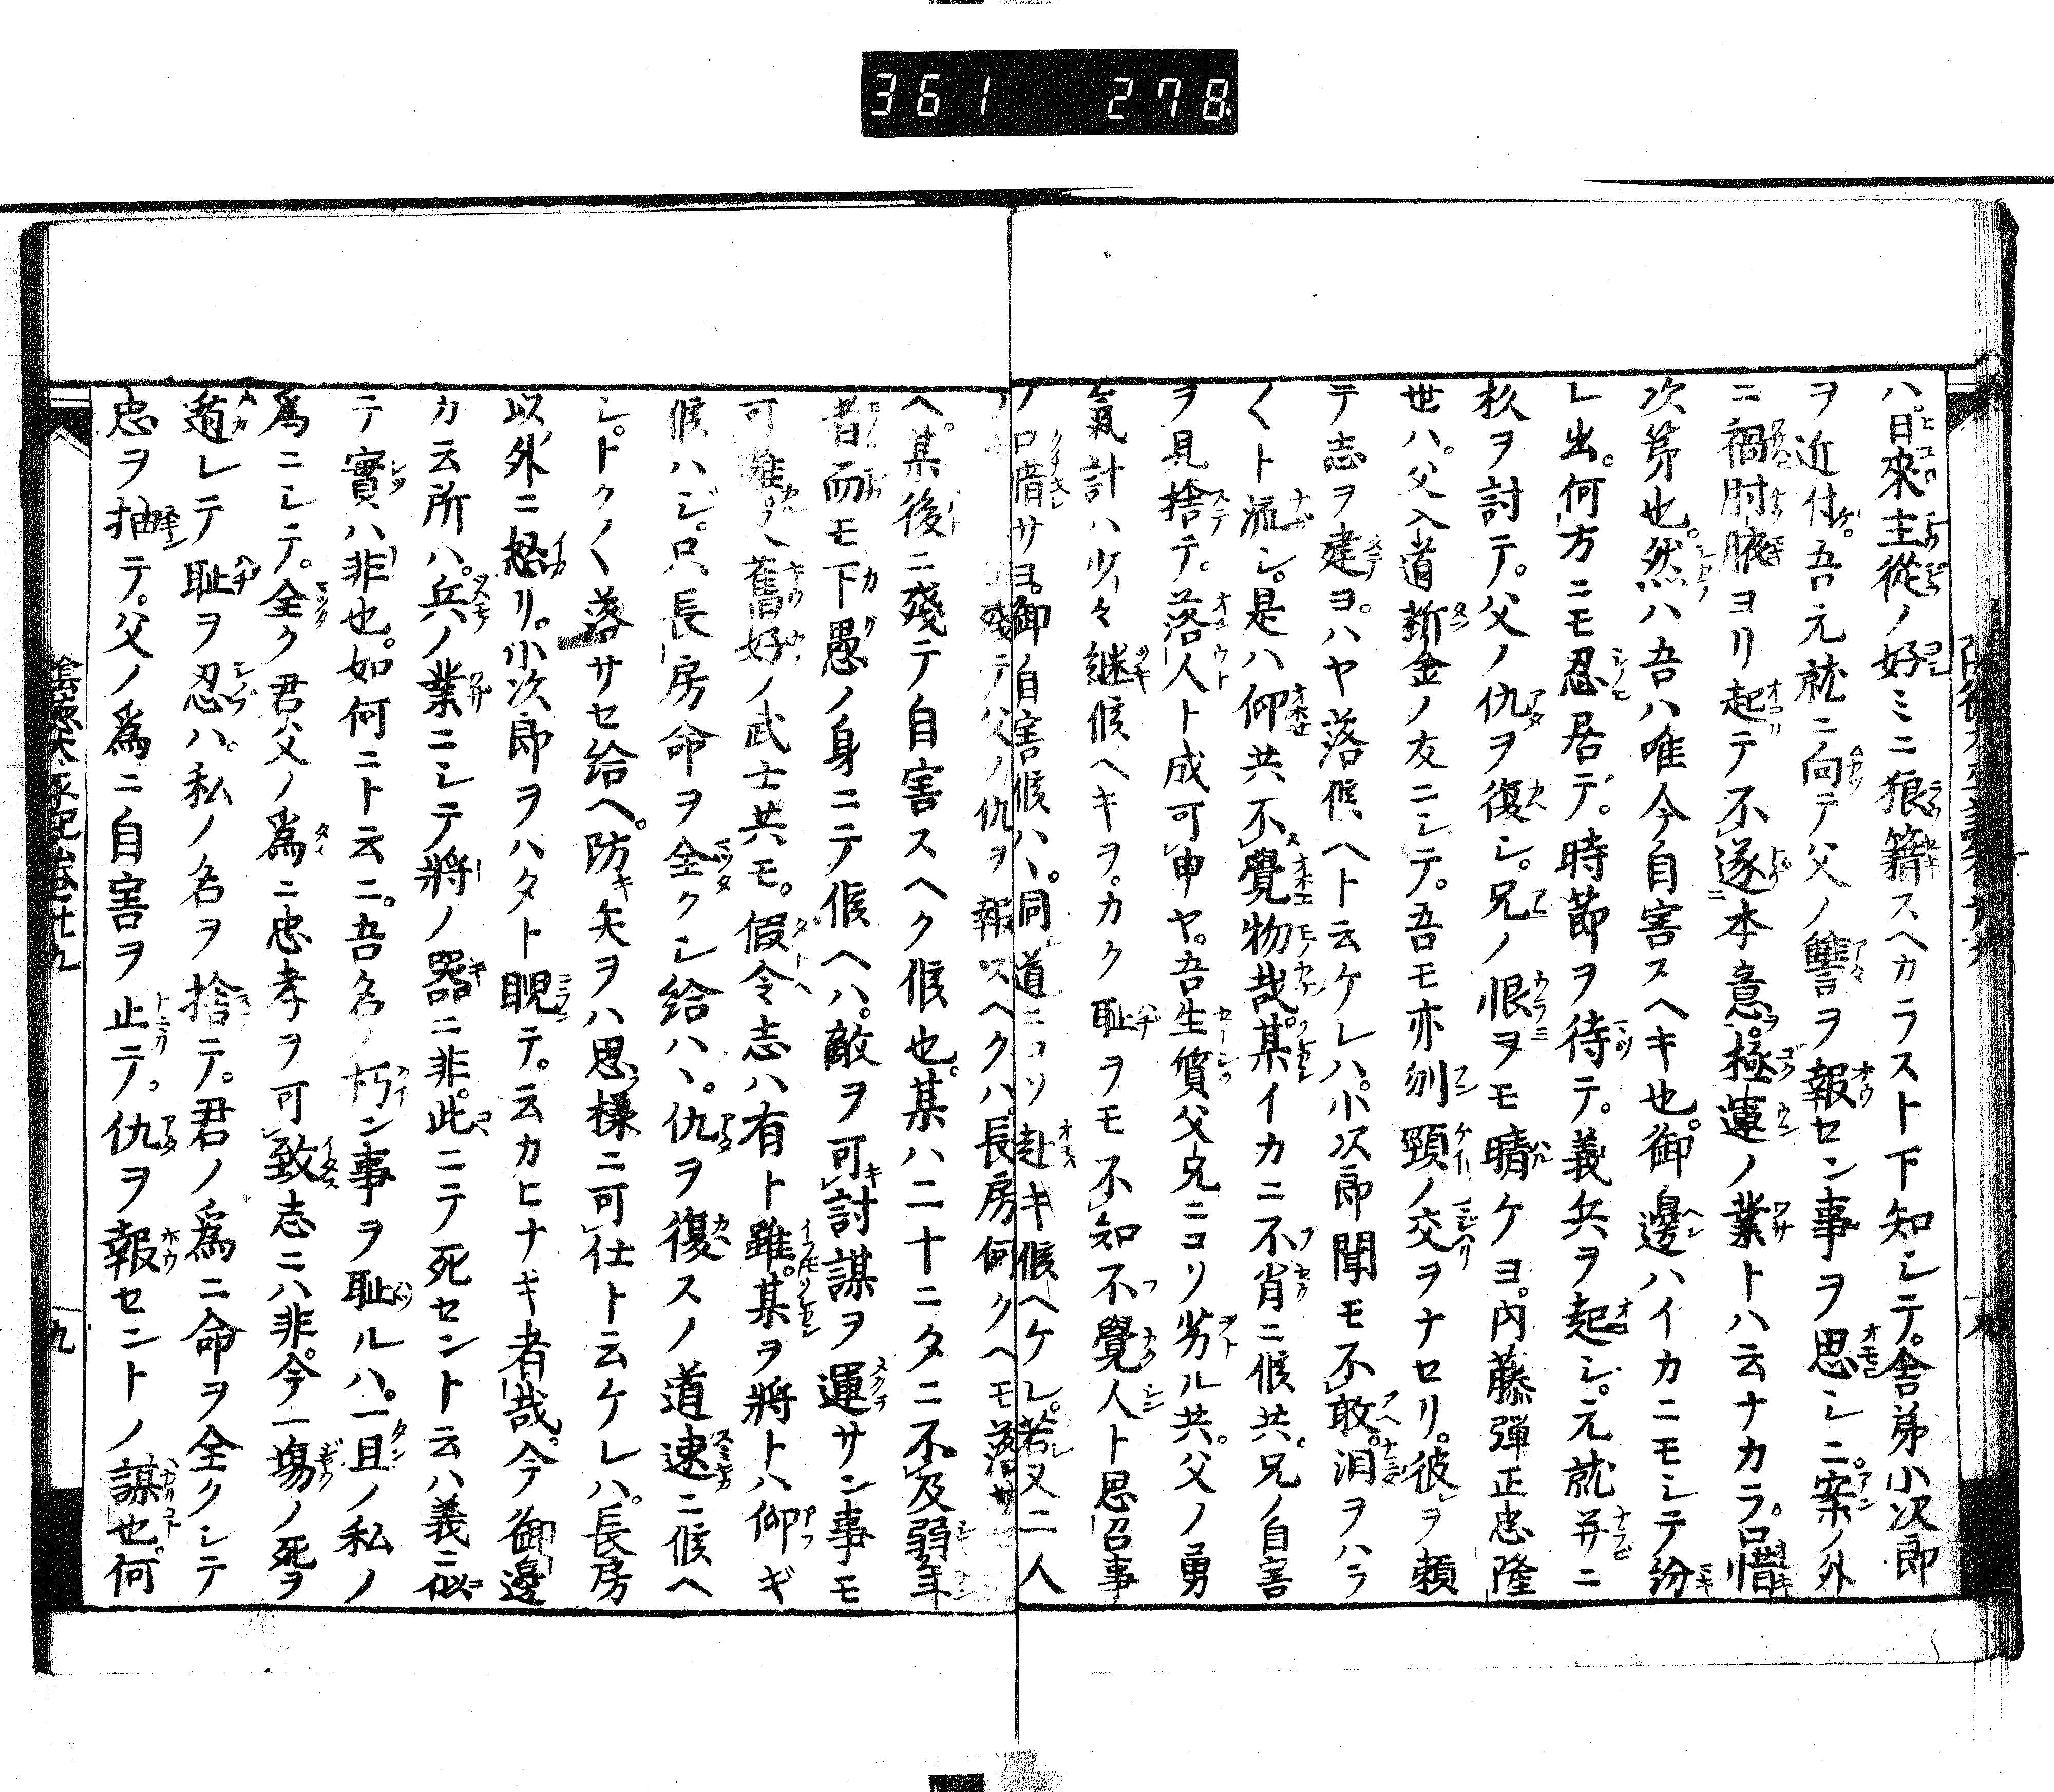 361 278
ハ。日來主從ノ好ミニ狼籍スヘカラスト下知シテ。舎弟小次郎
ヲ近付ケ。吾元就ニ向テ父ノ讐ヲ報セン事ヲ思シニ。案ノ外
ニ禍肘腋ヨリ起テ不遂本意。極運ノ業トハ云ナカラ。口惜
次第也。然ハ吾ハ唯今自害スヘキ也。御邊ハイカニモシテ紛
レ出。何方ニモ忍居テ。時節ヲ待テ。義兵ヲ起シ。元就并ニ
杉ヲ討テ。父ノ仇ヲ復シ。兄ノ恨ヲモ晴ケヨ。内藤彈正忠隆
世ハ。父入道斷金ノ友ニシテ。吾モ亦刎頸ノ交ヲナセリ。彼ヲ頼
テ志ヲ建ヨ。ハヤ落候ヘト云ケレハ。小次郎聞モ不敢。泪ヲハラ
〱ト流シ。是ハ仰共不覺物哉。某イカニ不肖ニ候共。兄ノ自害
ヲ見捨テ。落人ト成可申ヤ。吾生質父兄ニコソ劣ル共。父ノ勇
氣計ハ少々継候ヘキヲ。カク恥ヲモ不知不覺人ト思召事
ノ口惜サヨ。御自害候ハヽ。同道ニコソ赴キ候ヘケレ。若又二人
殘テ父ノ仇ヲ報スヘクハ。長房何クヘモ落サ
ヘ。某後ニ殘テ自害スヘク候也。某ハ二十ニタニ不及弱年
者而モ下愚ノ身ニテ候ヘハ。敵ヲ可討謀ヲ運サン事モ
可難。ソノ上舊好ノ武士共モ。假令志ハ有ト雖。某ヲ將トハ仰ギ
候ハジ。只長房命ヲ全クシ給ハヽ。仇ヲ復スノ道速ニ候ヘ
シ。トク〱落サセ給ヘ。防キ矢ヲハ思樣ニ可仕ト云ケレハ。長房
以外ニ怒リ。小次郎ヲハタト睨テ。云カヒナキ者哉。今御邊
カ云所ハ。兵ノ業ニシテ將ノ器ニ非。此ニテ死セント云ハ義ニ似
テ實ハ非也。如何ニト云ニ。吾名ノ朽ン事ヲ恥ルハ。一旦ノ私ノ
爲ニシテ。全ク君父ノ爲ニ忠孝ヲ可致志ニハ非。今一塲ノ死ヲ
遁レテ恥ヲ忍ハ。私ノ名ヲ捨テ。君ノ爲ニ命ヲ全クシテ
忠ヲ抽テ。父ノ爲ニ自害ヲ止テ。仇ヲ報セントノ謀也。何
陰德太平記卷廿九
九